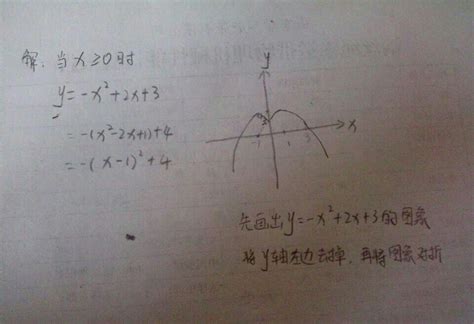 解：当x≥0时
y=-x²+2x+3
=-(x²-2x+1)+4
=-(x-1)²+4
y
3
-1 1 3 x
先画出y=-x²+2x+3的图象
将y轴左边去掉，再将图象对折